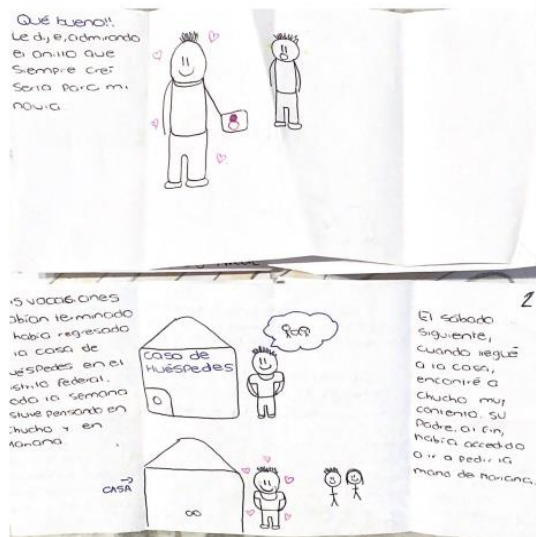 Qué bueno!!
Le dije, admirando
el anillo que
siempre creí
sería para mi
novia.
2
vacaciones
terminado
había regresado
la casa de
en el
Federal.
la semana
pensando en
chucho y en
casa de
Huéspedes
CASA
El sábado
siguiente,
cuando llegué
a la casa,
encontré a
chucho muy
contento. Su
Padre, al fin,
había accedido
a ir a pedir la
mano de Mariana.